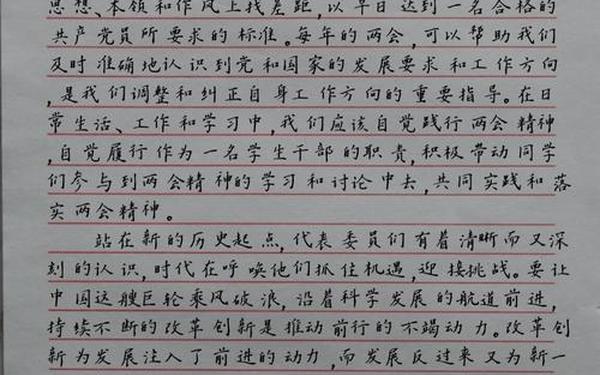 思想、本领和作风上找差距,以早日达到一名合格的
共产党员所要求的标准。每年的两会,可以帮助我们
及时准确地认识到党和国家的发展要求和工作方向
,是我们调整和纠正自身工作方向的重要指导。在日
常生活、工作和学习中,我们应该自觉践行两会精神
,自觉履行作为一名学生干部的职责,积极带动同学
们参与到两会精神的学习和讨论中去,共同实践和落
实两会精神。
站在新的历史起点,代表委员们有着清晰而又深
刻的认识,时代在呼唤他们抓住机遇,迎接挑战。要让
中国这艘巨轮乘风破浪,沿着科学发展的航道前进,
持续不断的改革创新是推动前行的不竭动力。改革创
新为发展注入了前进的动力,而发展反过来又为新一